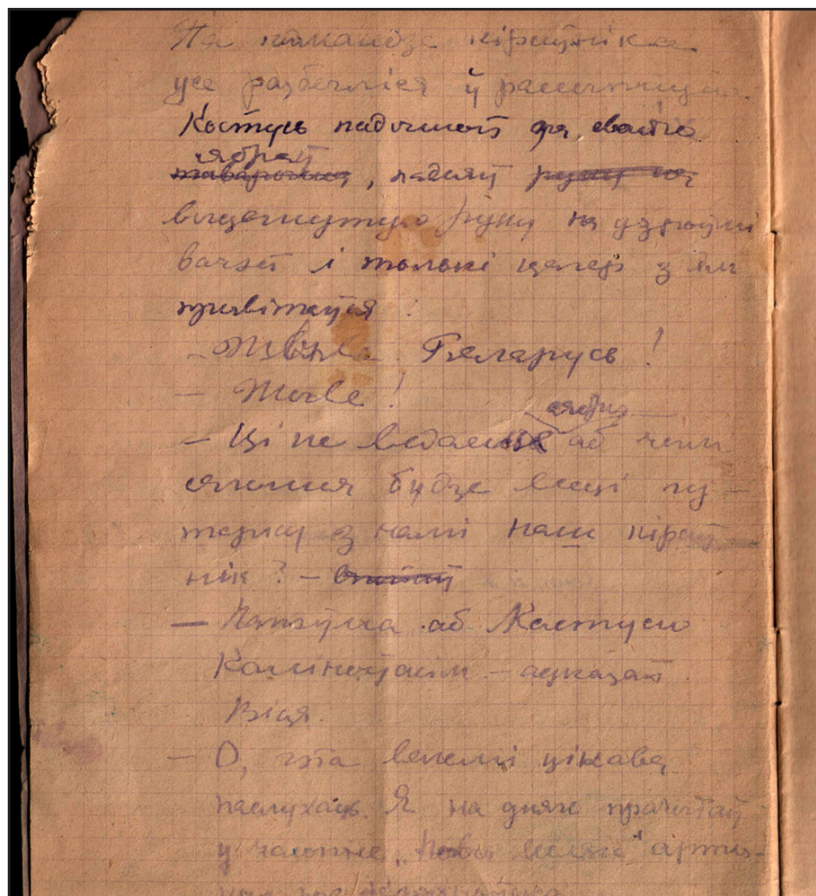 Па камандзе кіраўніка
усе разбегліся ў рассыпную.
Костусь падышоў да свайго
сябра
таварыша, падаў руку
выцягнутую руку на ўзроўні
вачэй і толькі цяпер з ім
прывітаўся:
– Жыве Беларусь!
– Жыве!
сябра
– Ці не ведаеш аб чым
сяння будзе весці гу-
тарку з намі наш кіраў-
нік? –
– Пэўна аб Кастусю
Каліноўскім – адказаў
Віця.
– О, гэта вельмі цікава
паслухаць. Я на днях прачытаў
у часопісе „Новы шлях" арты-